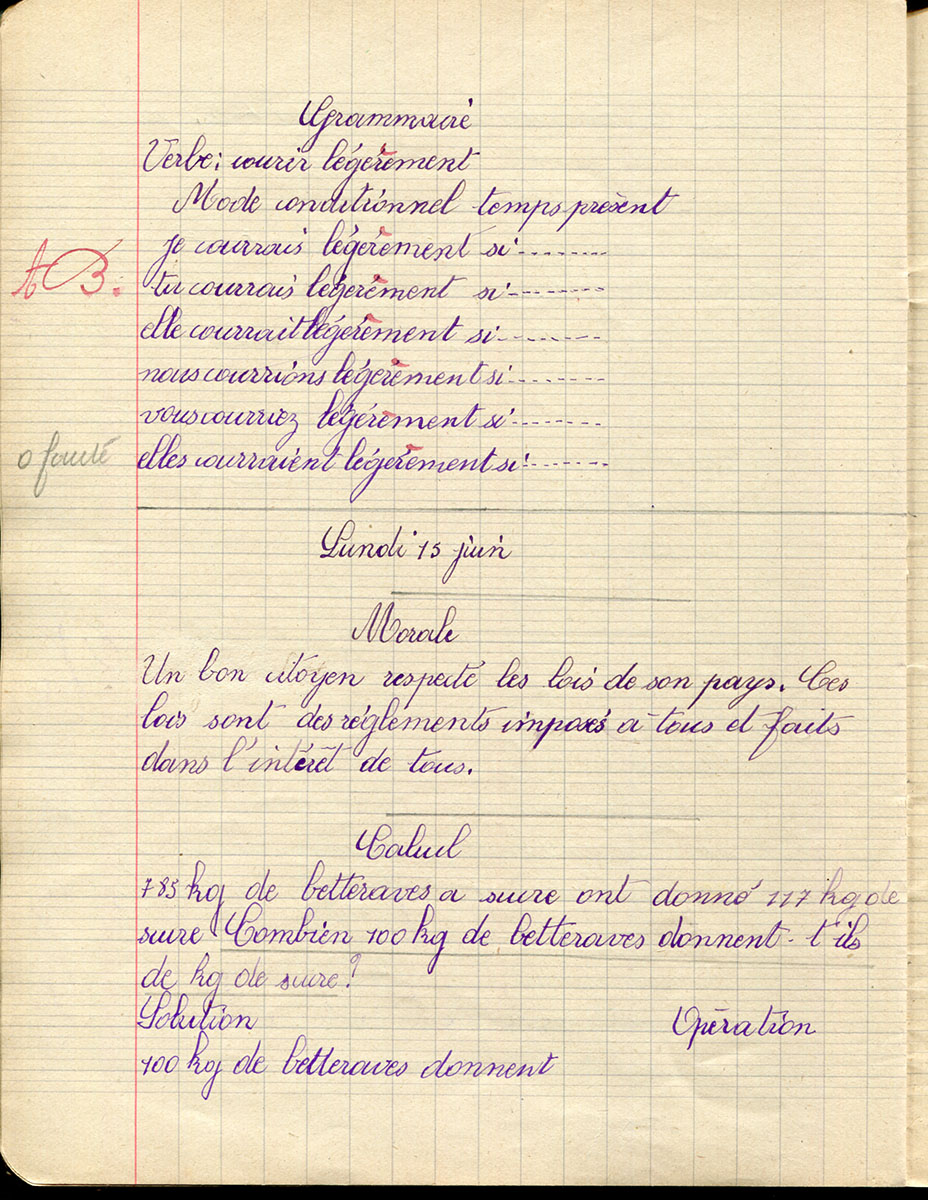 Grammaire
Verbe: courir légèrement
Mode conditionnel temps présent
je courrais légèrement si -------
AB.
tu courrais légèrement si -------
elle courrait légèrement si -------
nous courrions légèrement si -------
vous courriez légèrement si -------
0 faute
elles courraient légèrement si -------
Lundi 15 juin
Morale
Un bon citoyen respecte les lois de son pays. Ces
lois sont des réglements imposés à tous et faits
dans l'intérêt de tous.
Calcul
785 kg de betteraves a sucre ont donné 117 kg de
sucre Combien 100 kg de betteraves donnent-t'ils
de kg de sucre?
Solution
Opération
100 kg de betteraves donnent